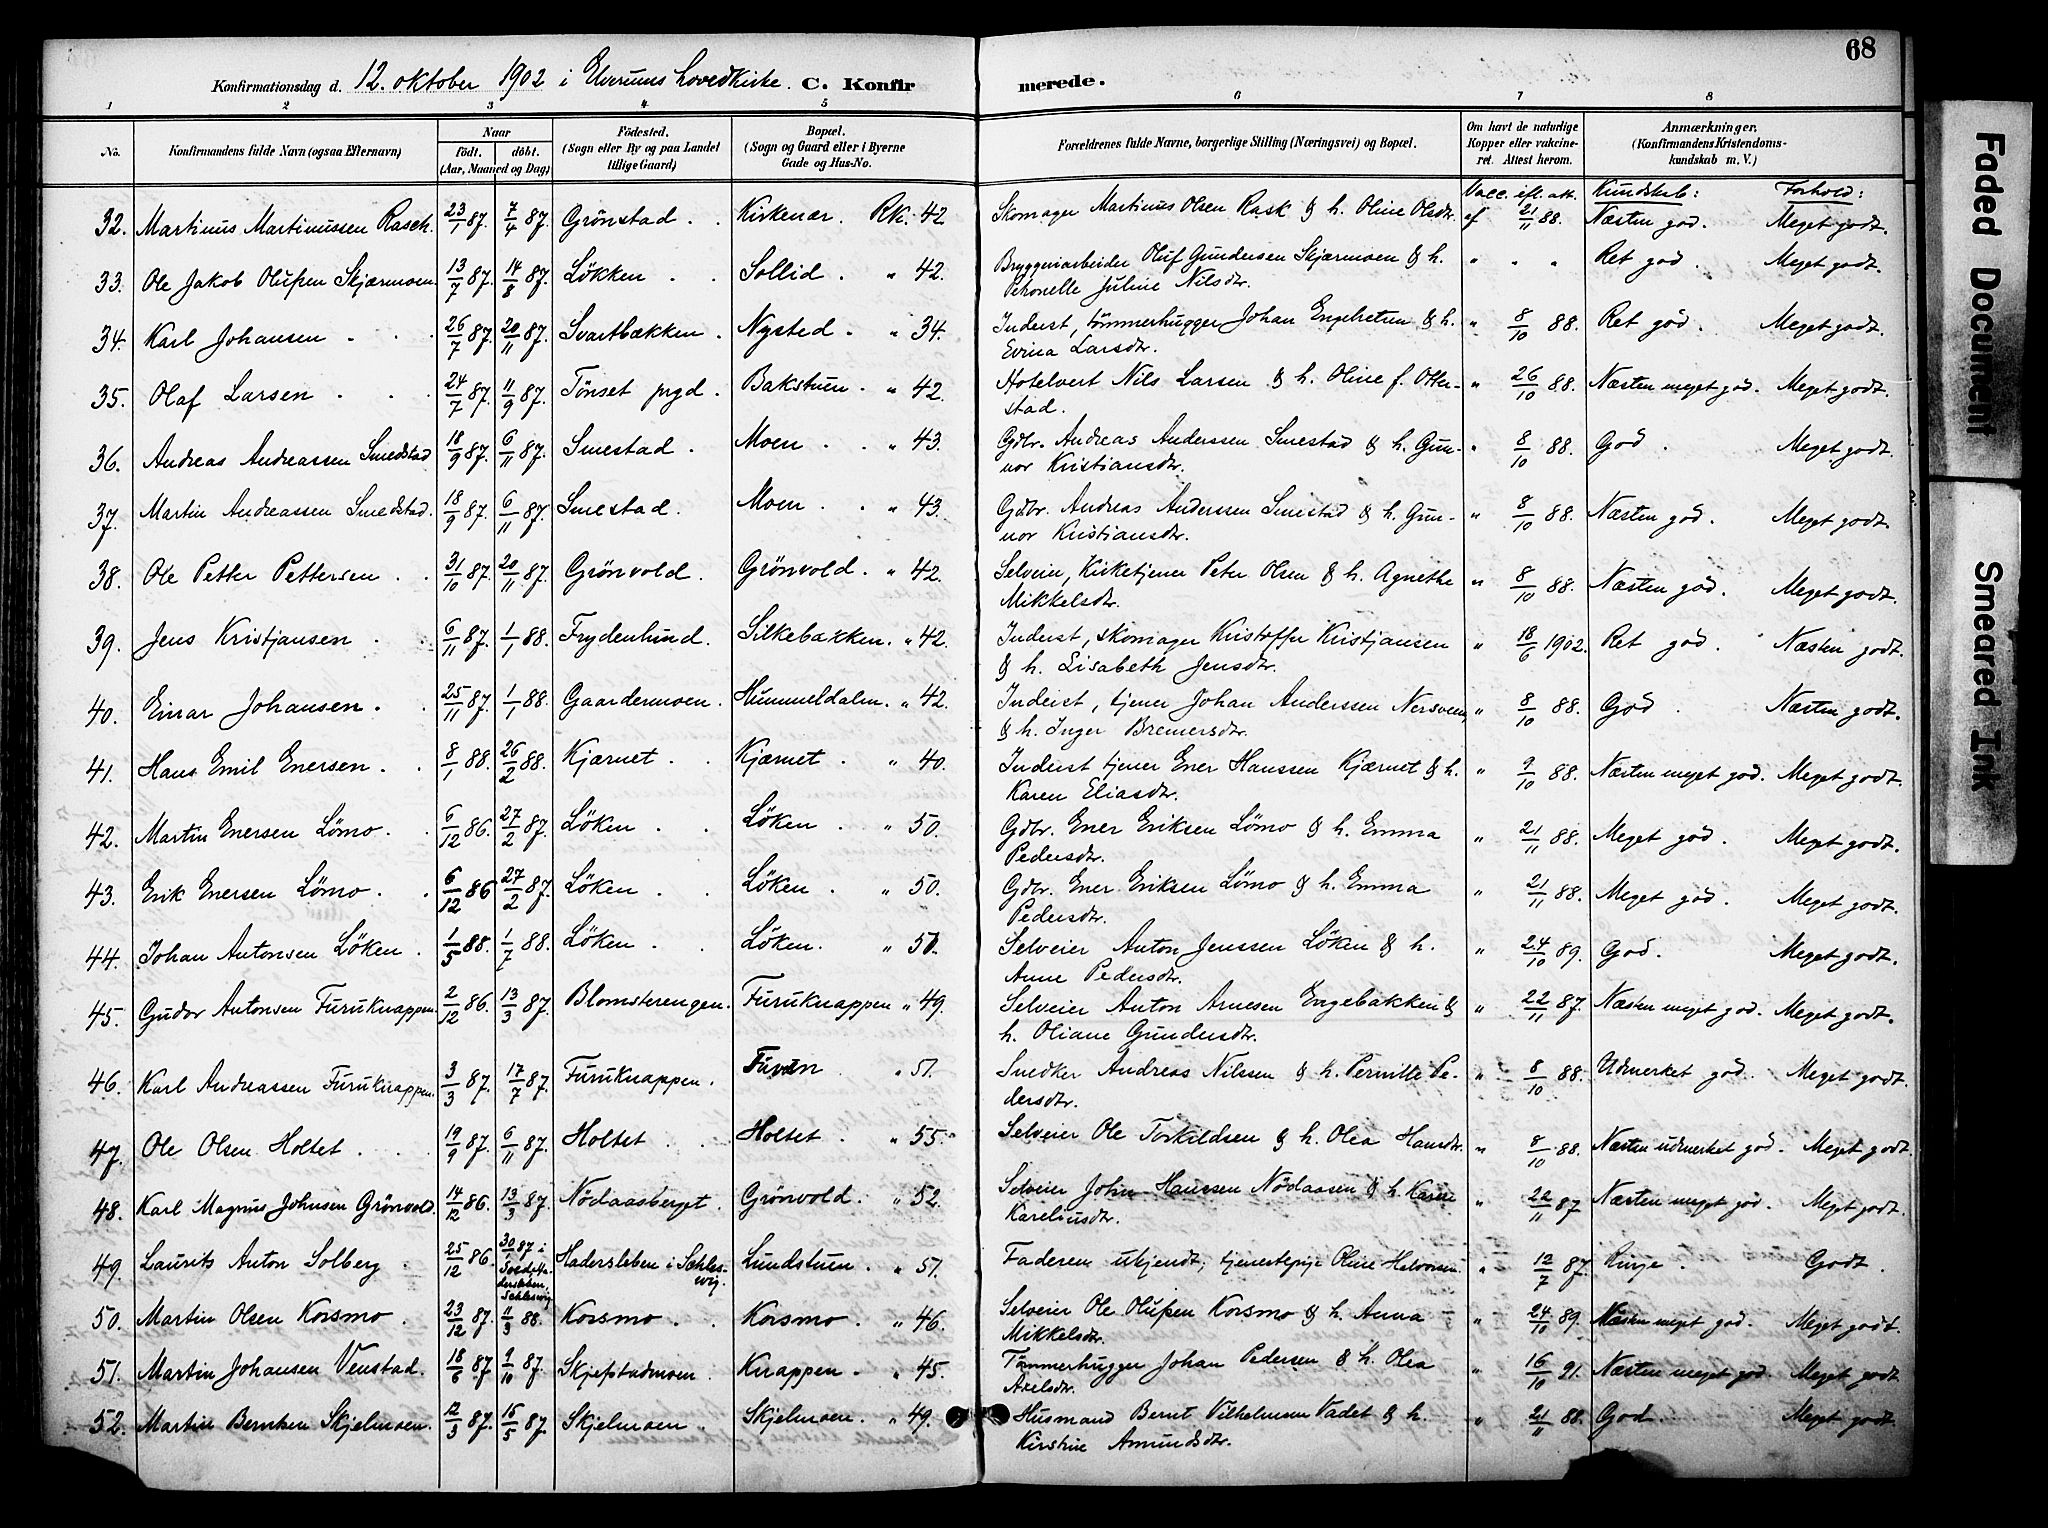 68
Konfirmationsdag d. 12. oktober 1902 i Elverums hovedkirke. C. Konfirmerede.
1 2 3 4 5 6 7 8
No. Konfirmandens fulde Navn (ogsaa Efternavn) Naar födt. döbt. (Aar, Maaned og Dag) Födested. (Sogn eller By og paa Landet tillige Gaard) Bopæl. (Sogn og Gaard eller i Byerne Gade og Hus-No. Forældrenes fulde Navne, borgerlige Stilling (Næringsvei) og Bopæl. Om havt de naturlige Kopper eller vakcineret. Attest herom. Anmærkninger. (Konfirmandens Kristendomskundskab m. V.)
Vacc. efl. att. Kundskab: Forhold:
32. Martinus Martinussen Rasch. 23/1 87. 7/4 87. Grönstad. Kirkenær. Rk. 42 Skomager Martinus Olsen Rask & h. Oline Olsdtr. af 21/11 88. Næsten god. Meget godt.
33. Ole Jakob Olufsen Skjærmoen 13/7 87. 14/8 87. Lökken Sollid. " 42. Bryggeriarbeider Oluf Gundersen Skjærmoen & h. " " " Ret god. Meget godt.
Petronelle Juline Nilsdtr.
34. Karl Johansen 26/7 87. 20/11 87. Svartbækken Nysted. " 34. Inderst, tömmerhugger Johan Engebretsen & h. " 8/10 88. Ret god. Meget godt.
Evina Larsdtr.
35. Olaf Larsen 24/7 87. 11/9 87. Tönset prgd. Bakstuen. " 42. Hotelvert Nils Larsen & h. Oline f. Otter- " 26/10 88. Næsten meget god. Meget godt.
stad.
36. Andreas Andreassen Smedstad 18/9 87. 6/11 87. Smestad. Moen. " 43. Gdbr. Andreas Anderssen Smestad & h. Gun- " 8/10 88. God. Meget godt.
nor Kristiansdtr.
37. Martin Andreassen Smedstad. 18/9 87. 6/11 87. Smestad. Moen. " 43. Gdbr. Andreas Anderssen Smestad & h. Gun- " 8/10 88. Næsten god. Meget godt.
nor Kristiansdtr.
38. Ole Petter Pettersen. 31/10 87. 20/11 87. Grönvold. Grönvold. " 42. Selveier, Kirketjener Peter Olsen & h. Agnethe " 8/10 88. Næsten god. Meget godt.
Mikkelsdtr.
39. Jens Kristjansen 6/11 87. 1/1 88. Frydenlund. Silkebakken. " 42. Inderst, skomager Kristoffer Kristjansen " 18/6 1902. Ret god. Næsten godt.
& h. Lisabeth Jensdtr.
40. Einar Johansen. 25/11 87. 1/1 88. Gaardermoen. Hummeldalen. " 42. Inderst, tjener Johan Anderssen Nersveen " 8/10 88. God. Næsten godt.
& h. Inger Bremersdtr.
41. Hans Emil Enersen. 8/1 88. 26/2 88. Kjærnet. Kjærnet. " 40. Inderst tjener Ener Hanssen Kjærnet & h. " 9/10 88. Næsten meget god. Meget godt.
Karen Eliasdtr.
42. Martin Enersen Lömo. 6/12 86. 27/2 87. Löken. Löken. " 50. Gdbr. Ener Eriksen Lömo & h. Emma " 21/11 88. Meget god. Meget godt.
Pedersdtr.
43. Erik Enersen Lömo. 6/12 86 27/2 87. Löken. Löken. " 50. Gdbr. Ener Eriksen Lömo & h. Emma " 21/11 88. Meget god. Meget godt.
Pedersdtr.
44. Johan Antonsen Löken. 1/5 88. 1/7 88. Löken. Löken. " Selveier Anton Jenssen Löken & h. " 24/10 89. God. Meget godt.
Anne Pedersdtr.
45. Gudor Antonsen Furuknappen. 2/12 86. 13/3 87. Blomsterengen. Furuknappen " 49. Selveier Anton Arnesen Engebakken & " 22/11 87. Næsten meget god. Meget godt.
h. Oliane Gundersdtr.
46. Karl Andreassen Furuknappen. 3/3 87. 17/7 87. Furuknappen. " 51. Snedker Andreas Nilssen & h. Pernille Pe- " 8/10 88. Udmerket god. Meget godt.
dersdtr.
47. Ole Olsen Holtet. 19/9 87. 6/11 87. Holtet. Holtet. " 55. Selveier Ole Torkildsen & h. Olea Hansdtr. " 8/10 88. Næsten udmerket god. Meget godt.
48. Karl Magnus Johnsen Grönvold. 14/12 86. 13/3 87. Nödaasberget. Grönvold. " 52. Selveier John Hanssen Nödaasen & h. Karen " 22/11 87 Næsten meget god. Meget godt.
Kareliusdtr.
49. Laurits Anton Solberg 25/12 86. 30/1 87 i Hadersleben, Schleswig Hadersleben i Schleswig. Lundstuen. " 51. Faderen ukjendt, tjenestepige Oline Halvorsen. " 12/7 87. Ringe. Godt.
50. Martin Olsen Korsmo. 23/12 87. 11/3 88. Korsmo. Korsmo. " 46. Selveier Ole Olufsen Korsmo & h. Anna " 24/10 89. Næsten meget god. Meget godt.
Mikkelsdtr.
51. Martin Johansen Venstad. 18/6 87. 9/10 87. Skjefstadmoen. Knappen. " 45. Tömmerhugger Johan Pedersen & h. Olea " 16/10 91. Næsten meget god. Meget godt
Axelsdtr.
52. Martin Berntsen Skjelmoen. 12/3 87. 15/5 87. Skjelmoen " Skjelmoen. " 49. Husmand Bernt Vilhelmsen Vadet & h. " 21/11 88. God. Meget godt.
Kirstine Amundsdtr.
Faded Document
Smeared Ink